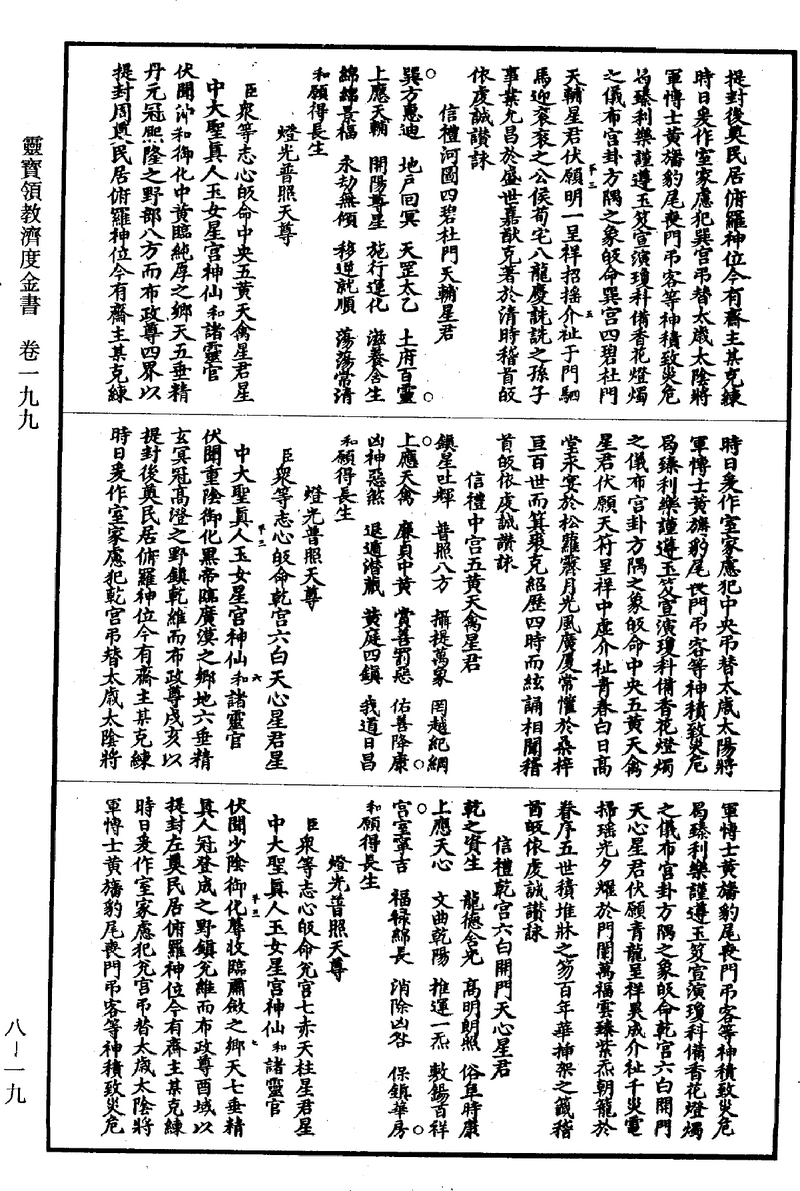 提封後奠民居俯羅神位今有齋主某克練
時日爰作室家慮犯巽宮弔替太歲太陰將
軍博士黃旛豹尾喪門弔客等神積致災危
曷臻利樂謹遵玉笈宣演瓊科備香花燈燭
之儀布宮卦方隅之象皈命巽宮四碧杜門
天輔星君伏願明一呈祥招搖介祉于門駟
馬迎袞袞之公侯荀宅八龍慶詵詵之孫子
事業允昌於盛世嘉猷克著於清時稽首皈
依虔誠讚詠
信禮河圖四碧杜門天輔星君
巽方惠迪 地戶回冥 天罡太乙 土府百靈
上應天輔 開陽尊星 施行運化 滋養含生
綿綿景福 永劫無傾 移逆就順 蕩蕩常清
和願得長生
燈光普照天尊
臣眾等志心皈命中央五黃天禽星君星
中大聖真人玉女星宮神仙和諸靈官
伏聞沖和御化中黃臨純厚之鄉天五垂精
丹元冠熙隆之野部八方而布政尊四界以
提封周奠民居俯羅神位今有齋主某克練
時日爰作室家慮犯中央弔替太歲太陽將
軍博士黃旛豹尾喪門弔客等神積致災危
曷臻利樂謹遵玉笈宣演瓊科備香花燈燭
之儀布宮卦方隅之象皈命中央五黃天禽
星君伏願天符呈祥中虛介祉青春白日高
堂來宴於松蘿霽月光風廣廈常懽於桑梓
亘百世而箕裘克紹歷四時而絃誦相聞稽
首皈依虔誠讚詠
信禮中宮五黃天禽星君
鎮星吐輝 普照八方 攝提萬象 罔越紀綱
上應天禽 廉貞中黃 賞善罰惡 佑善降康
凶神惡煞 退遁潛藏 黃庭四鎮 我道日昌
和願得長生
燈光普照天尊
臣眾等志心皈命乾宮六白天心星君星
中大聖真人玉女星宮神仙和諸靈官
伏聞重陰御化黑帝臨廣漠之鄉地六垂精
玄冥冠高澄之野鎮乾維而布政尊戌亥以
提封後奠民居俯羅神位今有齋主某克練
時日爰作室家慮犯乾宮弔替太歲太陰將
軍博士黃旛豹尾喪門弔客等神積致災危
曷臻利樂謹遵玉笈宣演瓊科備香花燈燭
之儀布宮卦方隅之象皈命乾宮六白開門
天心星君伏願青龍呈祥異成介祉千災電
掃瑤光夕耀於門闌萬福雲臻紫炁朝籠於
眷序五世積堆牀之笏百年華插架之籤稽
首皈依虔誠讚詠
信禮乾宮六白開門天心星君
乾之資生 龍德含光 高明朗照 俗阜時康
上應天心 文曲乾陽 推運一炁 敷錫百祥
宮室寧吉 福祿綿長 消除凶咎 保鎮華房
和願得長生
燈光普照天尊
臣眾等志心皈命兌宮七赤天柱星君星
中大聖真人玉女星宮神仙和諸靈官
伏聞少陰御化蓐收臨肅斂之鄉天七垂精
真人冠登成之野鎮兌維而布政尊酉域以
提封左奠民居俯羅神位今有齋主某克練
時日爰作室家慮犯兌宮弔替太歲太陰將
軍博士黃旛豹尾喪門弔客等神積致災危
靈寶領教濟度金書 卷一九九
八—一九